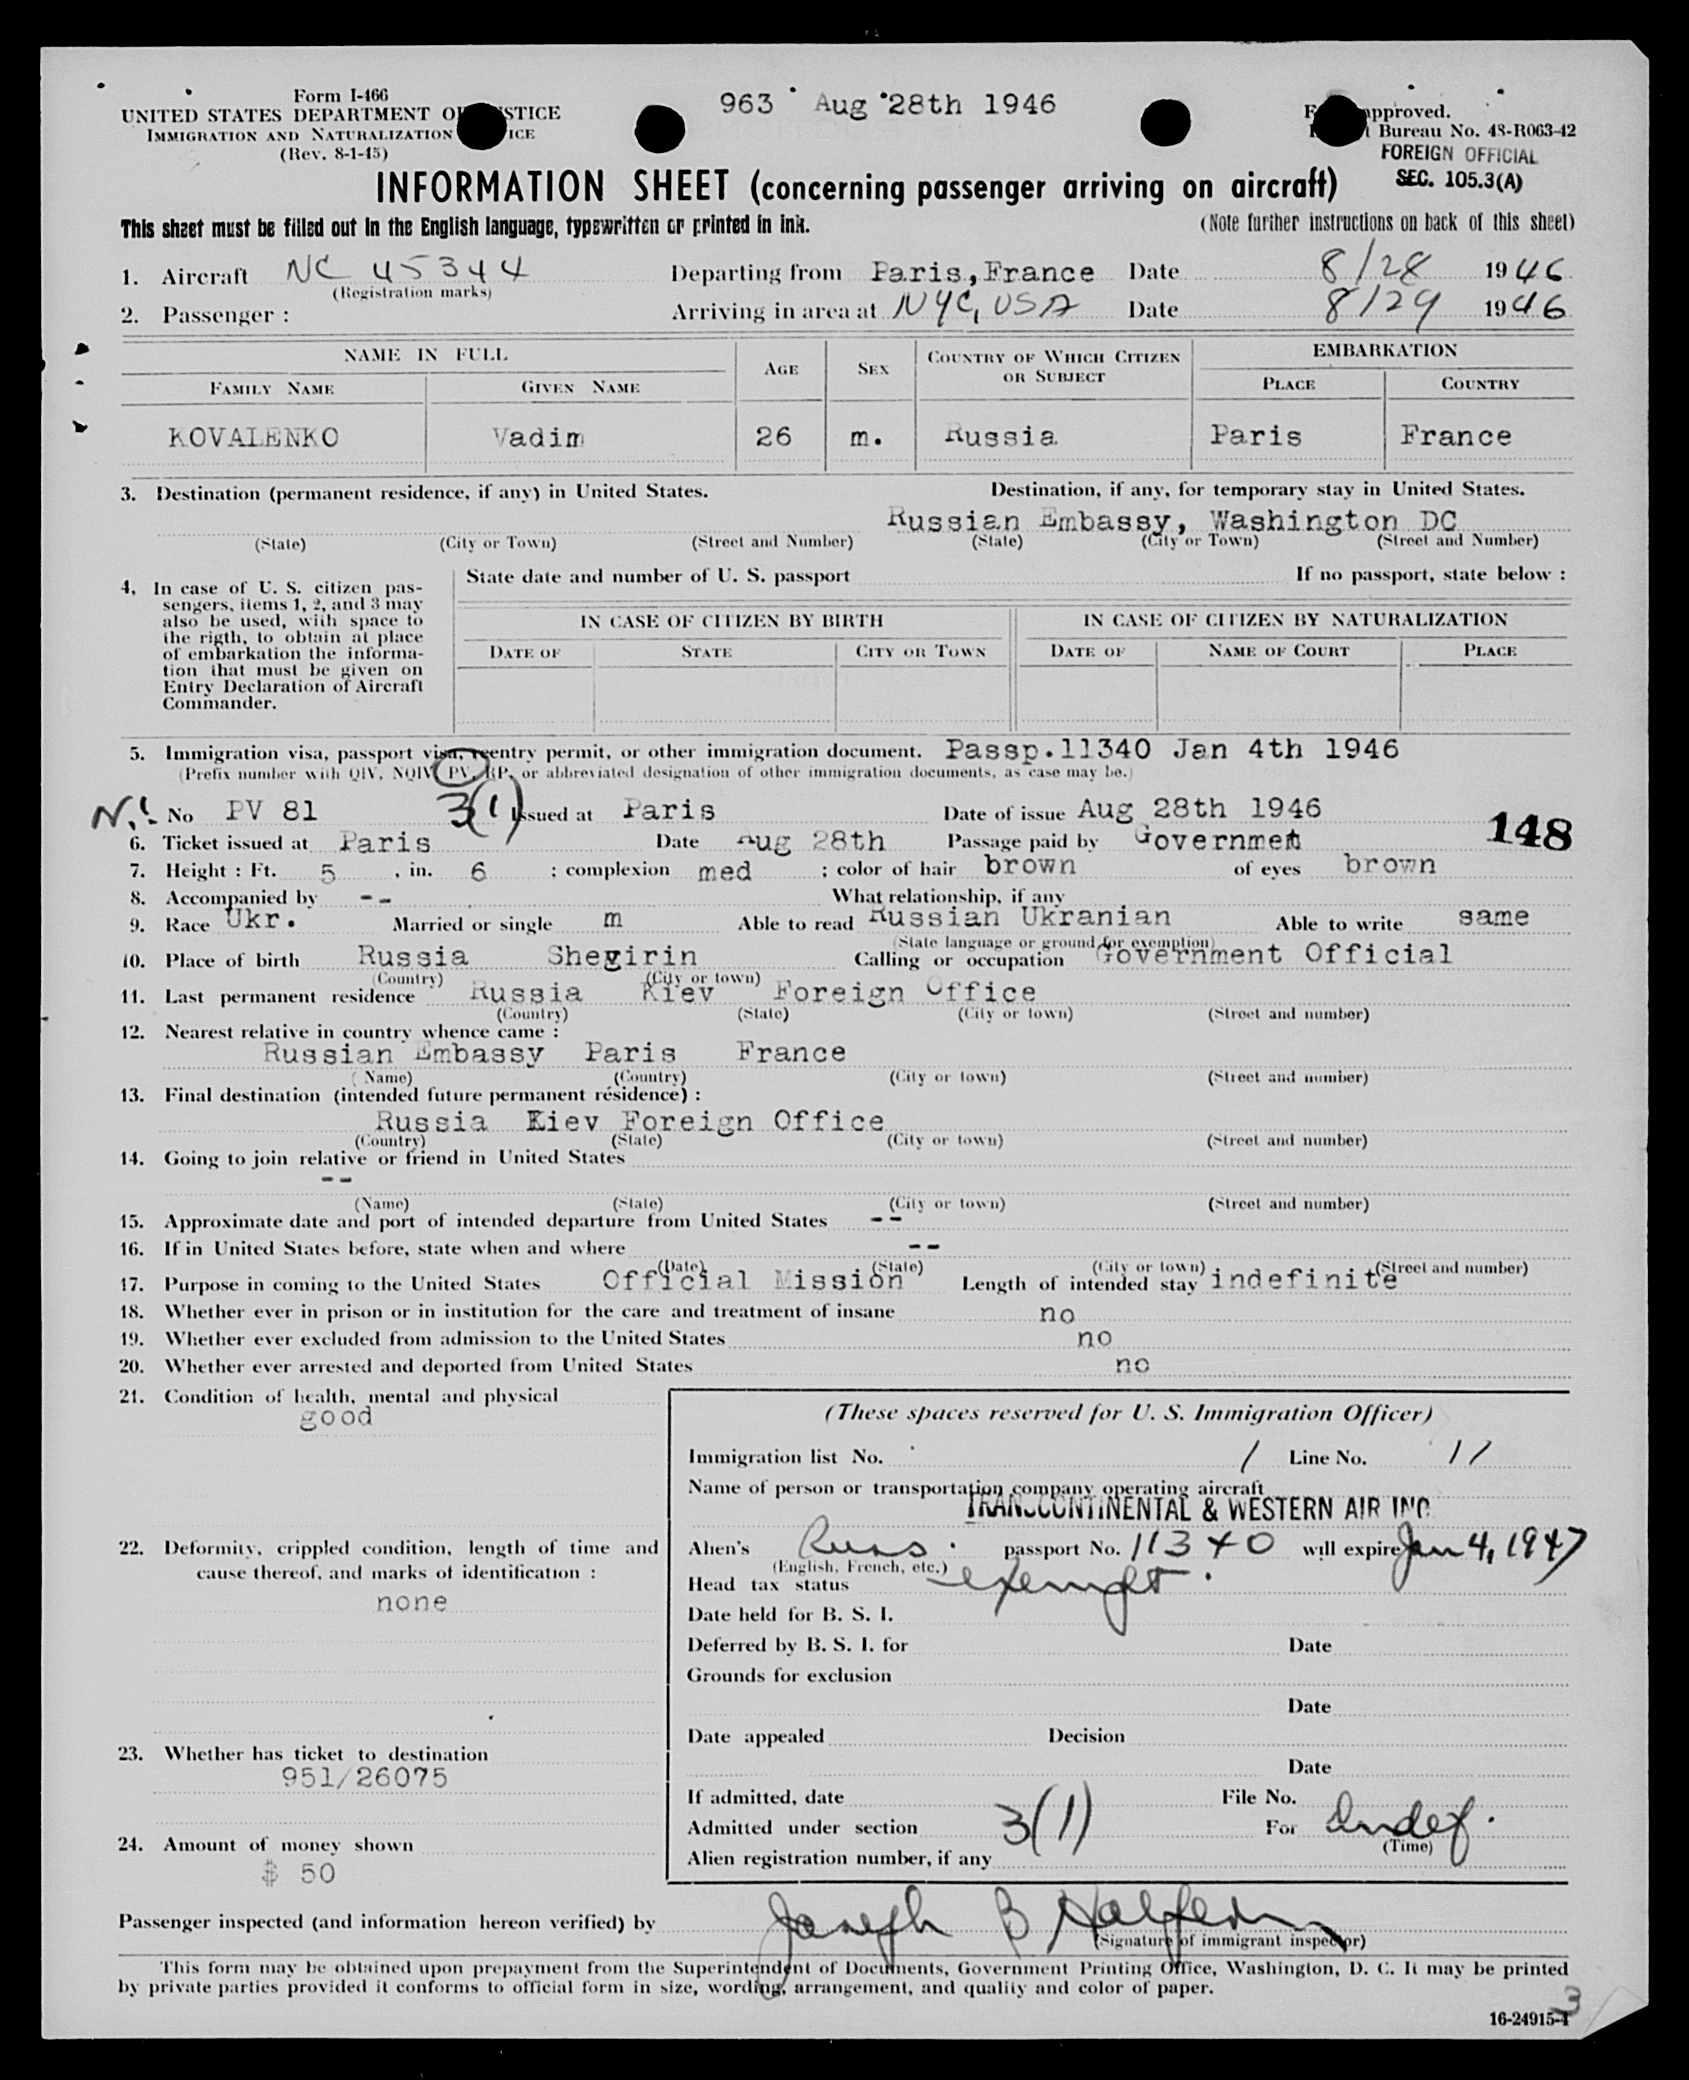 Form I-466
UNITED STATES DEPARTMENT O STICE
IMMIGRATION AND NATURALIZATION ICE
(Rev. 8-1-45)
963 Aug 28th 1946
F approved.
t Bureau No. 43-R063-42
FOREIGN OFFICIAL
SEC. 105.3(A)
INFORMATION SHEET (concerning passenger arriving on aircraft)
This sheet must be filled out in the English language, typewritten or printed in ink.
(Note further instructions on back of this sheet)
1. Aircraft NC 45344 Departing from Paris, France Date 8/28 1946
(Registration marks)
2. Passenger : Arriving in area at NYC, USA Date 8/29 1946
NAME IN FULL AGE SEX COUNTRY OF WHICH CITIZEN OR SUBJECT EMBARKATION
FAMILY NAME GIVEN NAME PLACE COUNTRY
KOVALENKO Vadim 26 m. Russia Paris France
3. Destination (permanent residence, if any) in United States. Destination, if any, for temporary stay in United States.
Russian Embassy, Washington DC
(State) (City or Town) (Street and Number) (State) (City or Town) (Street and Number)
4. In case of U. S. citizen pas-
sengers, items 1, 2, and 3 may
also be used, with space to
the rigth, to obtain at place
of embarkation the informa-
tion that must be given on
Entry Declaration of Aircraft
Commander.
State date and number of U. S. passport If no passport, state below :
IN CASE OF CITIZEN BY BIRTH IN CASE OF CITIZEN BY NATURALIZATION
DATE OF STATE CITY OR TOWN DATE OF NAME OF COURT PLACE
5. Immigration visa, passport visa, reentry permit, or other immigration document. Passp.11340 Jan 4th 1946
(Prefix number with QIV, NQIV, PV, RP, or abbreviated designation of other immigration documents, as case may be.)
No PV 81 3(1) Issued at Paris Date of issue Aug 28th 1946
148
6. Ticket issued at Paris Date Aug 28th Passage paid by Governmet
7. Height : Ft. 5 , in. 6 ; complexion med ; color of hair brown of eyes brown
8. Accompanied by -- What relationship, if any
9. Race Ukr. Married or single m Able to read Russian Ukranian Able to write same
(State language or ground for exemption)
10. Place of birth Russia Shegirin Calling or occupation Government Official
(Country) (City or town)
11. Last permanent residence Russia Kiev Foreign Office
(Country) (State) (City or town) (Street and number)
12. Nearest relative in country whence came :
Russian Embassy Paris France
(Name) (Country) (City or town) (Street and number)
13. Final destination (intended future permanent résidence) :
Russia Kiev Foreign Office
(Country) (State) (City or town) (Street and number)
14. Going to join relative or friend in United States
--
(Name) (State) (City or town) (Street and number)
15. Approximate date and port of intended departure from United States --
16. If in United States before, state when and where --
(Date) (State) (City or town) (Street and number)
17. Purpose in coming to the United States Official Mission Length of intended stay indefinite
18. Whether ever in prison or in institution for the care and treatment of insane no
19. Whether ever excluded from admission to the United States no
20. Whether ever arrested and deported from United States no
21. Condition of health, mental and physical
good
22. Deformity, crippled condition, length of time and
cause thereof, and marks of identification :
none
23. Whether has ticket to destination
951/26075
24. Amount of money shown
$ 50
(These spaces reserved for U. S. Immigration Officer)
Immigration list No. 1 Line No. 11
Name of person or transportation company operating aircraft
TRANSCONTINENTAL & WESTERN AIR INC
Alien's Russ. passport No. 11340 will expire Jan 4, 1947
(English, French, etc.)
Head tax status exempt.
Date held for B. S. I.
Deferred by B. S. I. for Date
Grounds for exclusion
Date
Date appealed Decision
Date
If admitted, date File No.
Admitted under section 3(1) For Indef.
(Time)
Alien registration number, if any
Passenger inspected (and information hereon verified) by Joseph B
(Signature of immigrant inspector)
This form may be obtained upon prepayment from the Superintendent of Documents, Government Printing Office, Washington, D. C. It may be printed
by private parties provided it conforms to official form in size, wording, arrangement, and quality and color of paper.
3
16-24915-1